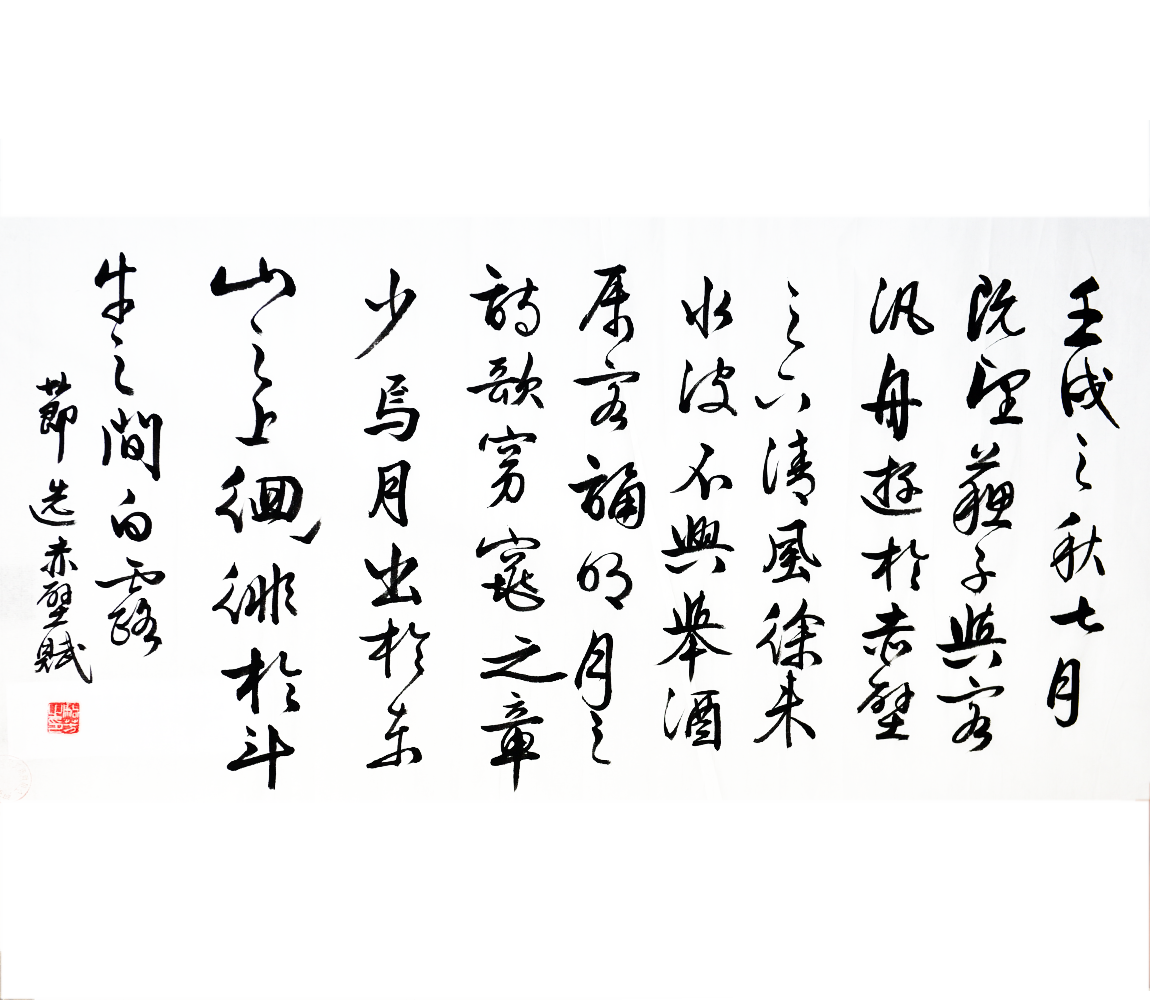 壬戌之秋七月
既望蘇子與客
汎舟遊於赤壁
之下清風徐來
水波不興舉酒
属客誦明月之
詩歌窈窕之章
少焉月出於東
山之上徊徘於斗
牛之間白露
節選赤壁賦